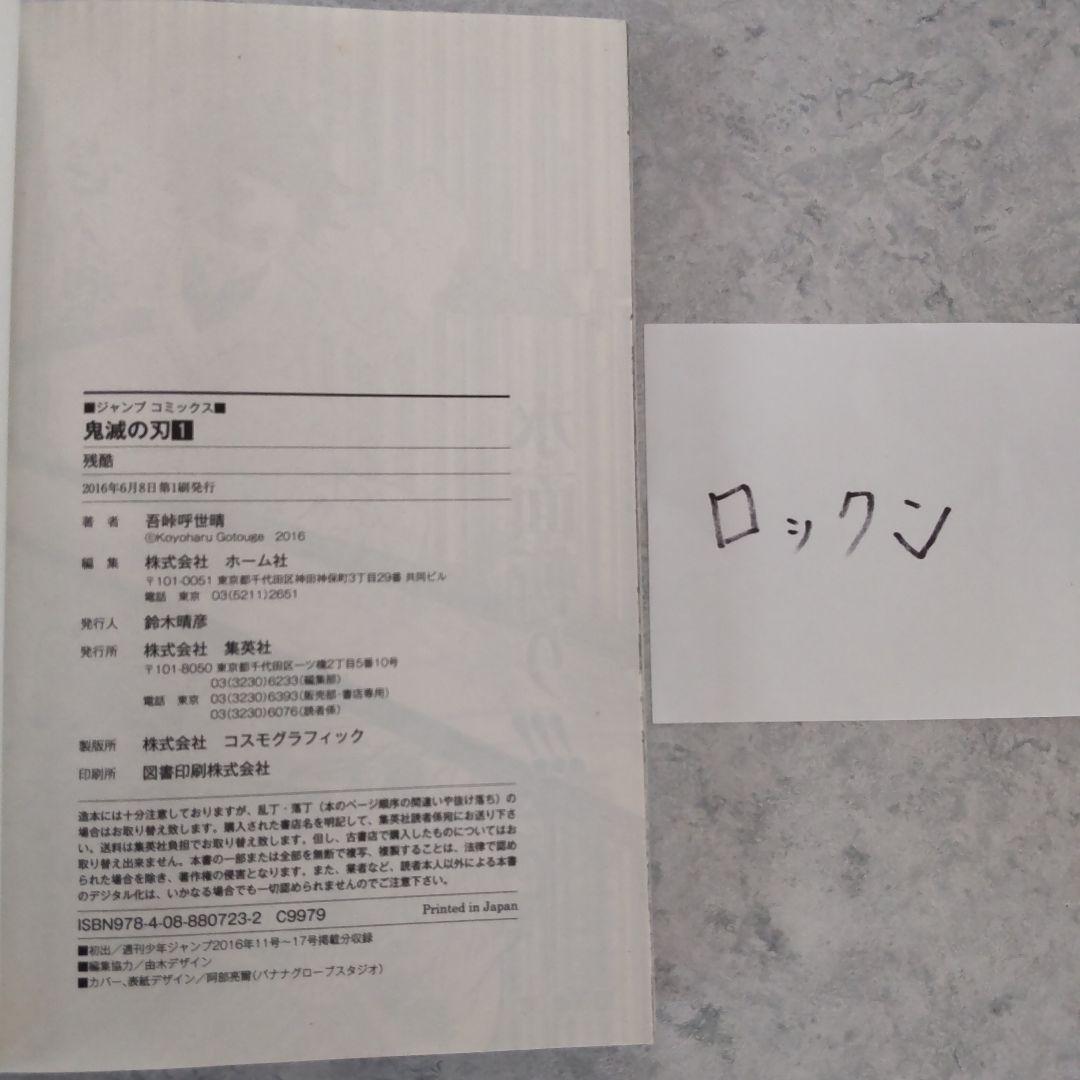 ■ジャンプ コミックス■
鬼滅の刃1
残酷
2016年6月8日第1刷発行
著 者 吾峠呼世晴
©Koyoharu Gotouge 2016
編 集 株式会社 ホーム社
〒101-0051 東京都千代田区神田神保町3丁目29番 共同ビル
電話 東京 03(5211)2651
発行人 鈴木晴彦
発行所 株式会社 集英社
〒101-8050 東京都千代田区一ツ橋2丁目5番10号
03(3230)6233(編集部)
電話 東京 03(3230)6393(販売部・書店専用)
03(3230)6076(読者係)
製版所 株式会社 コスモグラフィック
印刷所 図書印刷株式会社
造本には十分注意しておりますが、乱丁・落丁(本のページ順序の間違いや抜け落ち)の
場合はお取り替え致します。購入された書店名を明記して、集英社読者係宛にお送り下さ
い。送料は集英社負担でお取り替え致します。但し、古書店で購入したものについてはお
取り替え出来ません。本書の一部または全部を無断で複写、複製することは、法律で認め
られた場合を除き、著作権の侵害となります。また、業者など、読者本人以外による本書
のデジタル化は、いかなる場合でも一切認められませんのでご注意下さい。
ISBN978-4-08-880723-2 C9979
Printed in Japan
■初出/週刊少年ジャンプ2016年11号～17号掲載分収録
■編集協力/由木デザイン
■カバー、表紙デザイン/阿部亮爾(バナナグローブスタジオ)
ロックン